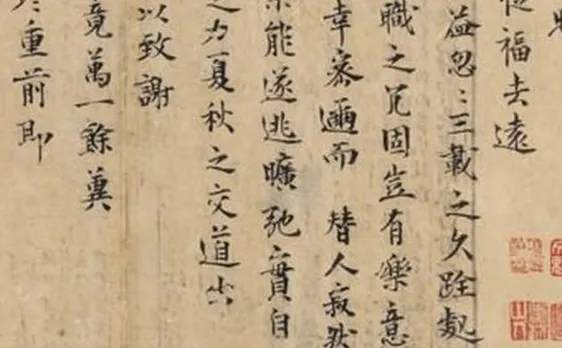 福去遠
益忽〻三載之久跧處
職之冗固豈有樂意
幸密邇而替人寂然
果能遂逃曠弛實自
之力夏秋之交道出
以致謝
竟萬一餘冀
重前即